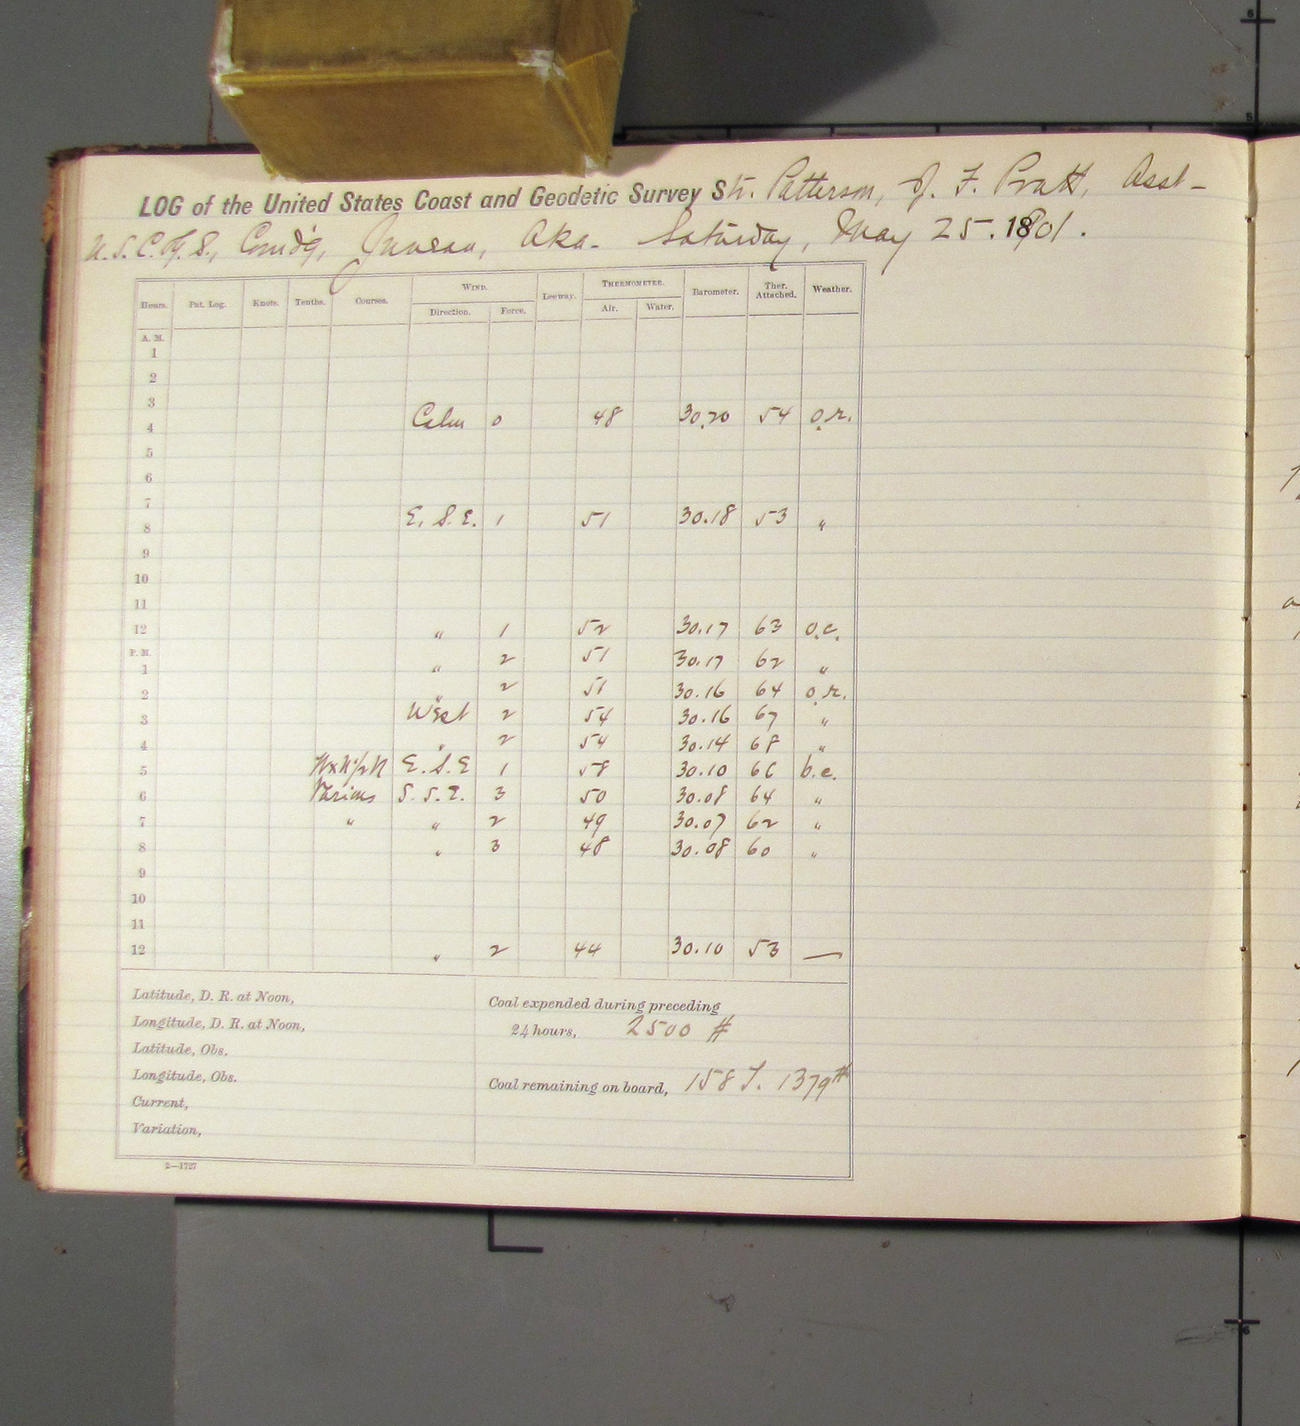 LOG of the United States Coast and Geodetic Survey Str. Patterson, J. F. Pratt, Asst-
U.S.C.&G.S., Comd'g, Juneau, Aka. Saturday, May 25. 1901.
Hours. Pat. Log. Knots. Tenths. Courses. WIND. Leeway. THERMOMETER. Barometer. Ther. Attached. Weather.
Direction. Force. Air. Water.
A. M.
1
2
3
4 Calm 0 48 30.20 54 o.r.
5
6
7
8 E. S. E. 1 51 30.18 53 "
9
10
11
12 " 1 52 30.17 63 o.c.
P. M.
1 " 2 51 30.17 62 "
2 " 2 51 30.16 64 o.r.
3 West 2 54 30.16 67 "
4 " 2 54 30.14 68 "
5 E. S. E 1 58 30.10 66 b.c.
6 Various S. S. E. 3 50 30.08 64 "
7 " " 2 49 30.07 62 "
8 " 3 48 30.08 60 "
9
10
11
12 " 2 44 30.10 53 —
Latitude, D. R. at Noon,
Longitude, D. R. at Noon,
Latitude, Obs.
Longitude, Obs.
Current,
Variation,
Coal expended during preceding
24 hours, 2500 #
Coal remaining on board, 158 T. 1379#
2—1727